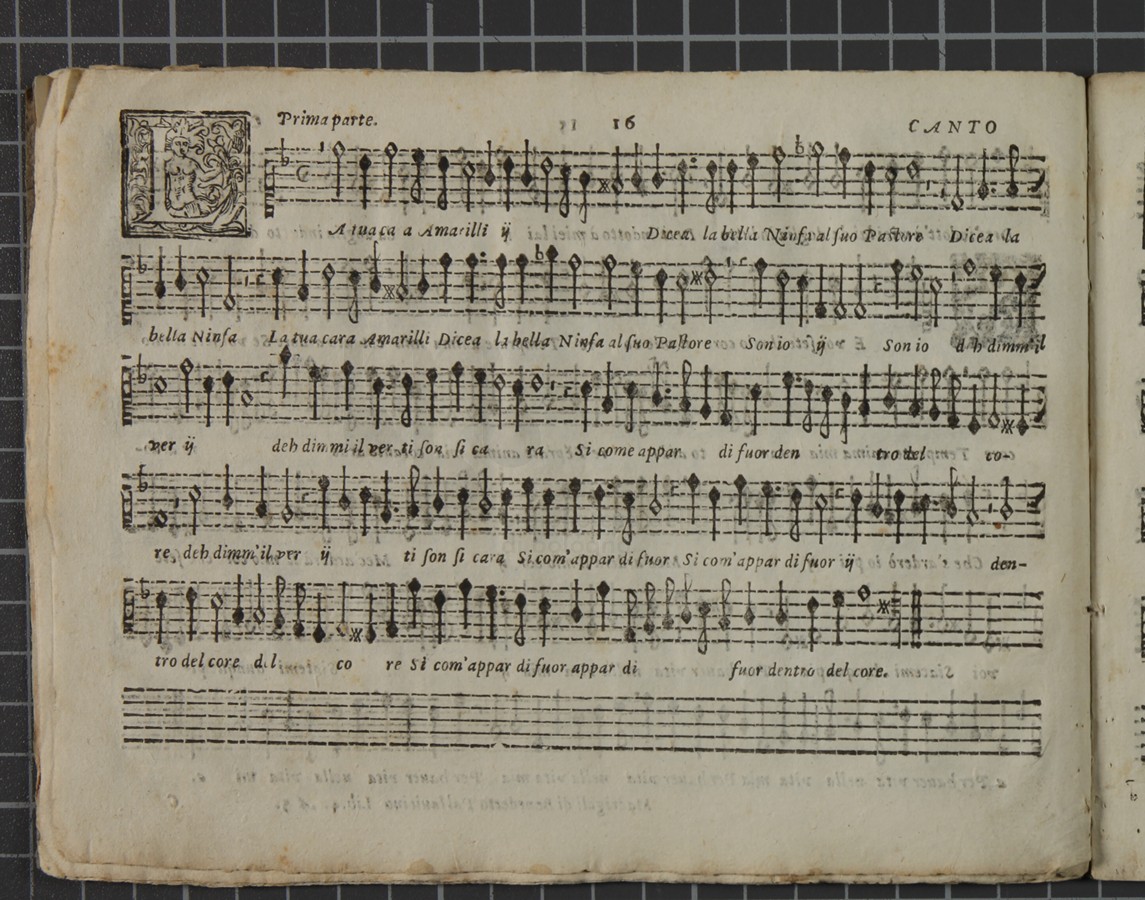 Prima parte. 16 CANTO
LA tua ca a Amarilli ij Dicea la bella Ninfa al suo Pastore Dicea la
bella Ninfa La tua cara Amarilli Dicea la bella Ninfa al suo Pastore Son io ij Son io d h dimm'il
ver ij deh dimmi il ver ti son si ca ra Si come appar di fuor den tro del co-
re deh dimm'il ver ij ti son si cara Si com'appar di fuor Si com'appar di fuor ij den-
tro del core d l co re Si com'appar di fuor appar di fuor dentro del core.